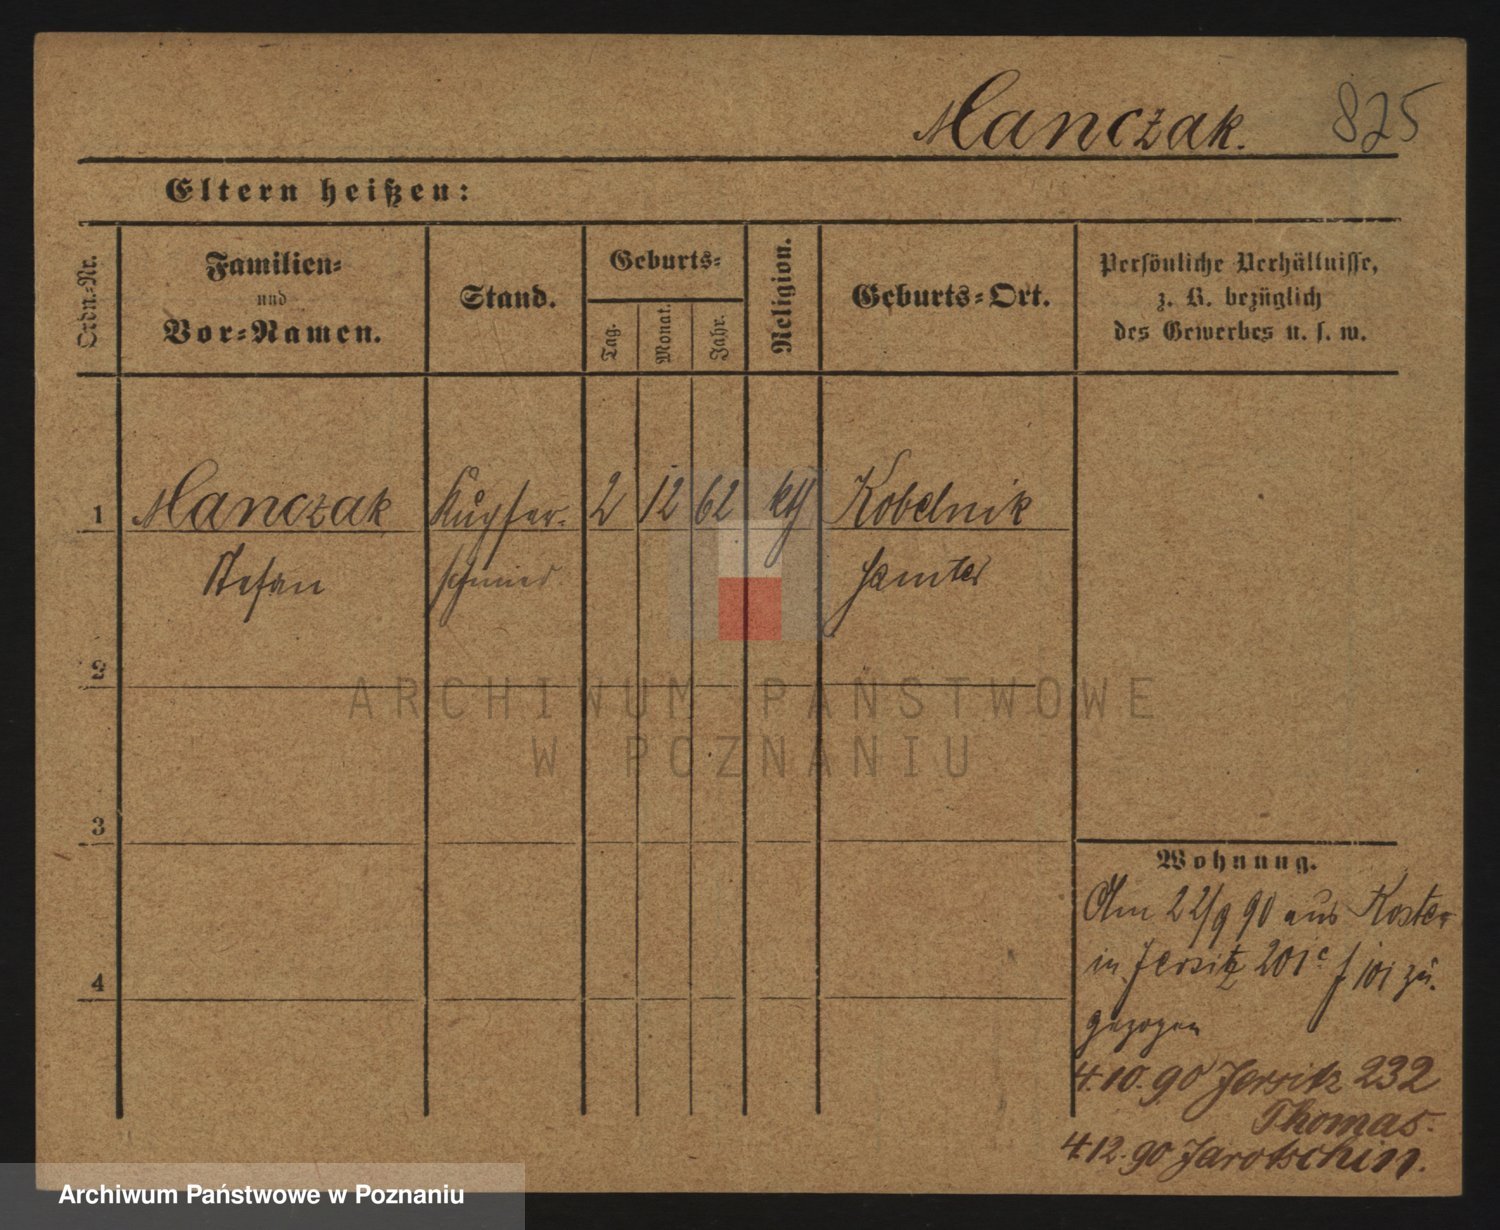 Manczak. 825
Eltern heißen:
Ordn.-Nr.
Familien-
und
Vor-Namen.
Stand.
Geburts-
Tag.
Monat.
Jahr.
Religion.
Geburts-Ort.
Persönliche Verhältnisse,
z. B. bezüglich
des Gewerbes u. s. w.
1 Manczak Kupfer- 2 12 62 kth Kobelnik
Stefan schmied Samter
2
3
4
Wohnung.
Am 22/9 90 aus Koster
in Jersitz 201c zu-
gezogen
4.10.90 Jersitz 232
Thomas.
4.12.90 Jarotschin.
ARCHIWUM PAŃSTWOWE
W POZNANIU
Archiwum Państwowe w Poznaniu